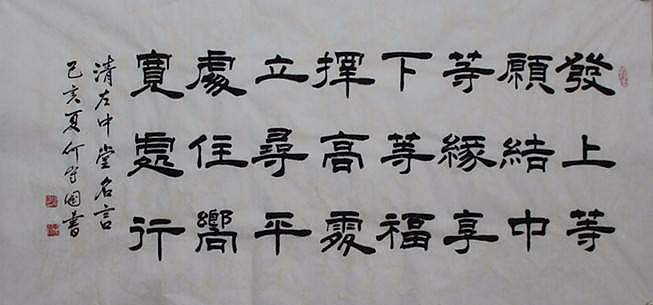 發上等
願結中
等緣享
下等福
擇高處
立尋平
處住嚮
寬處行
清左中堂名言
己亥夏国書